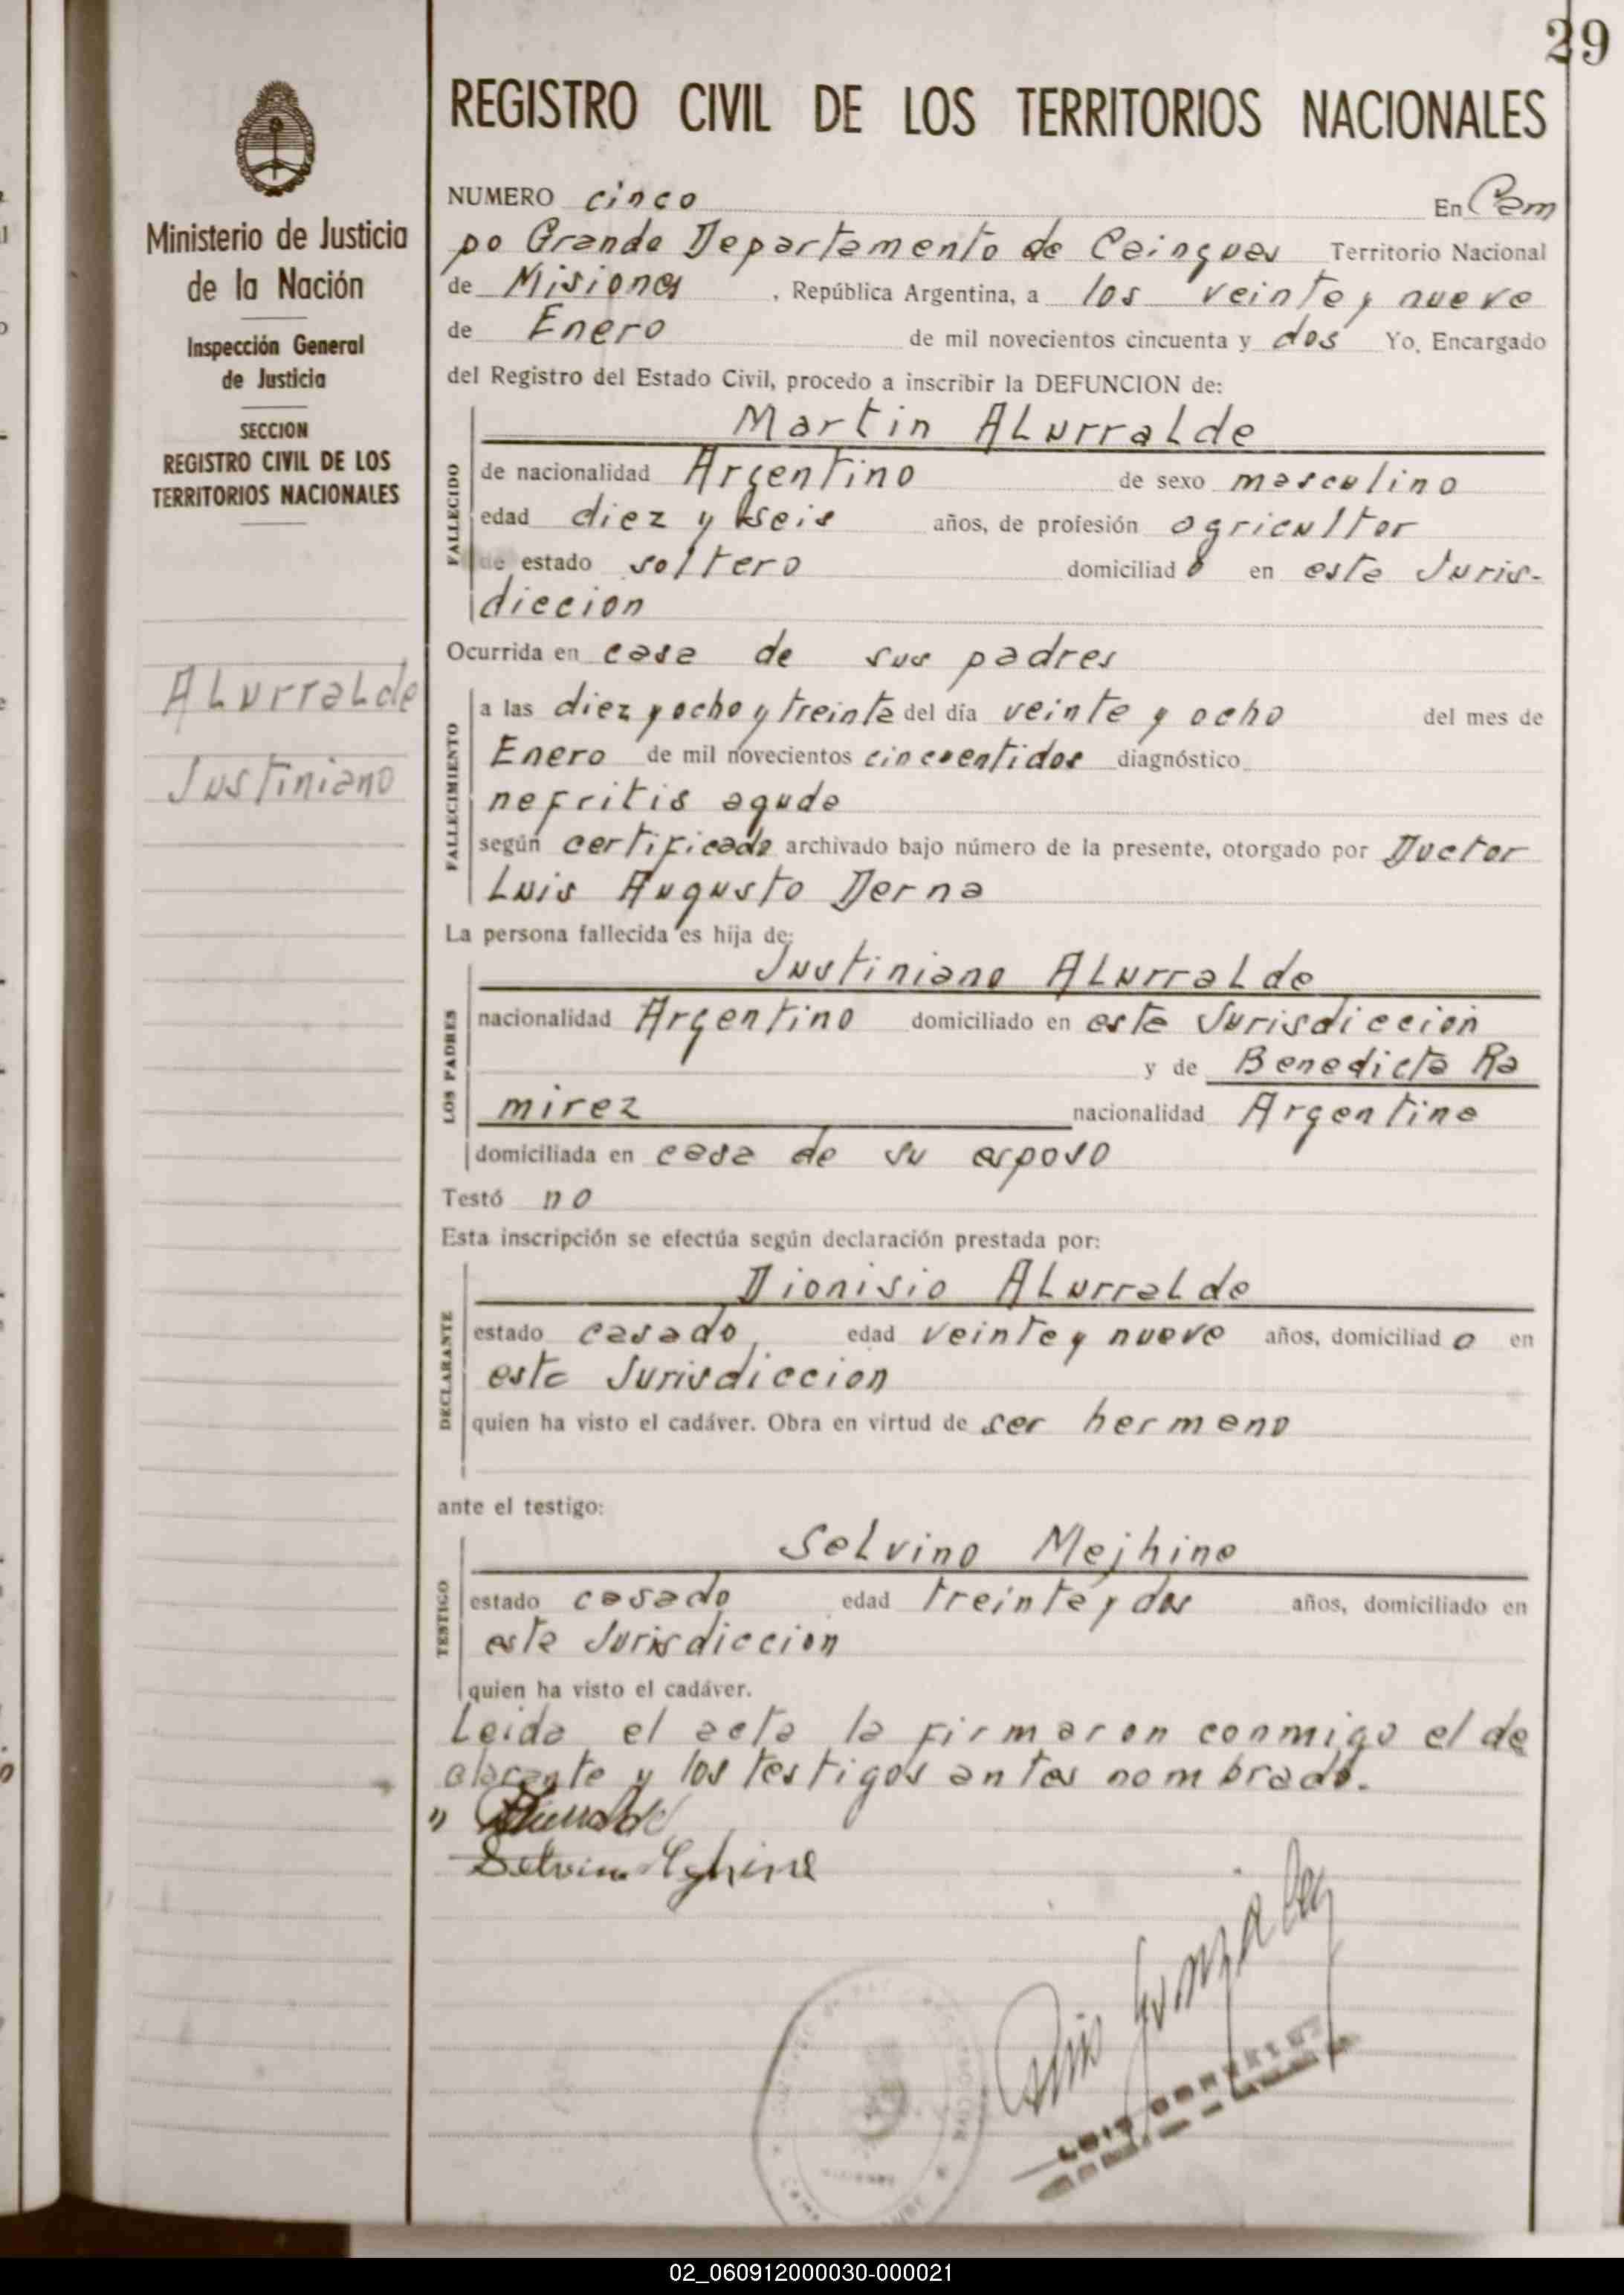 29
REGISTRO CIVIL DE LOS TERRITORIOS NACIONALES
Ministerio de Justicia
de la Nación
Inspección General
de Justicia
SECCION
REGISTRO CIVIL DE LOS
TERRITORIOS NACIONALES
ALurraLde
Justiniano
NUMERO cinco En Cam
po Grande Departamento de Cainguas Territorio Nacional
de Misiones, República Argentina, a los veinte y nueve
de Enero de mil novecientos cincuenta y dos Yo, Encargado
del Registro del Estado Civil, procedo a inscribir la DEFUNCION de:
Martin ALurraLde
FALLECIDO
de nacionalidad Argentino de sexo masculino
edad diez y seis años, de profesión agricultor
de estado soltero domiciliado en esta Juris-
diccion
Ocurrida en casa de sus padres
FALLECIMIENTO
a las diez y ocho y treinta del día veinte y ocho del mes de
Enero de mil novecientos cincuentidos diagnóstico
nefritis aguda
según certificado archivado bajo número de la presente, otorgado por Doctor
Luis Augusto Derna
La persona fallecida es hija de:
Justiniano ALurraLde
LOS PADRES
nacionalidad Argentino domiciliado en esta Jurisdiccion
y de Benedicta Ra
mirez nacionalidad Argentina
domiciliada en casa de su esposo
Testó no
Esta inscripción se efectúa según declaración prestada por:
Dionisio ALurraLde
DECLARANTE
estado casado, edad veinte y nueve años, domiciliado en
esta Jurisdiccion
quien ha visto el cadáver. Obra en virtud de ser hermano
ante el testigo:
SeLvino Mejhino
TESTIGO
estado casado edad treinta y dos años, domiciliado en
esta Jurisdiccion
quien ha visto el cadáver.
Leida el acta la firmaron conmigo el de
clarante y los testigos antes nombrado.
Luis Gonzalez
LUIS GONZALEZ
02_060912000030-000021